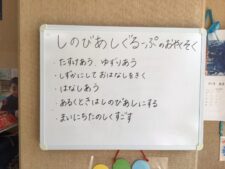 しのびあしぐるーぷのおやくそく
・たすけあう、ゆずりあう
・しずかにしておはなしをきく
・はなしあう
・あるくときはしのびあしにする
・まいにちたのしくすごす